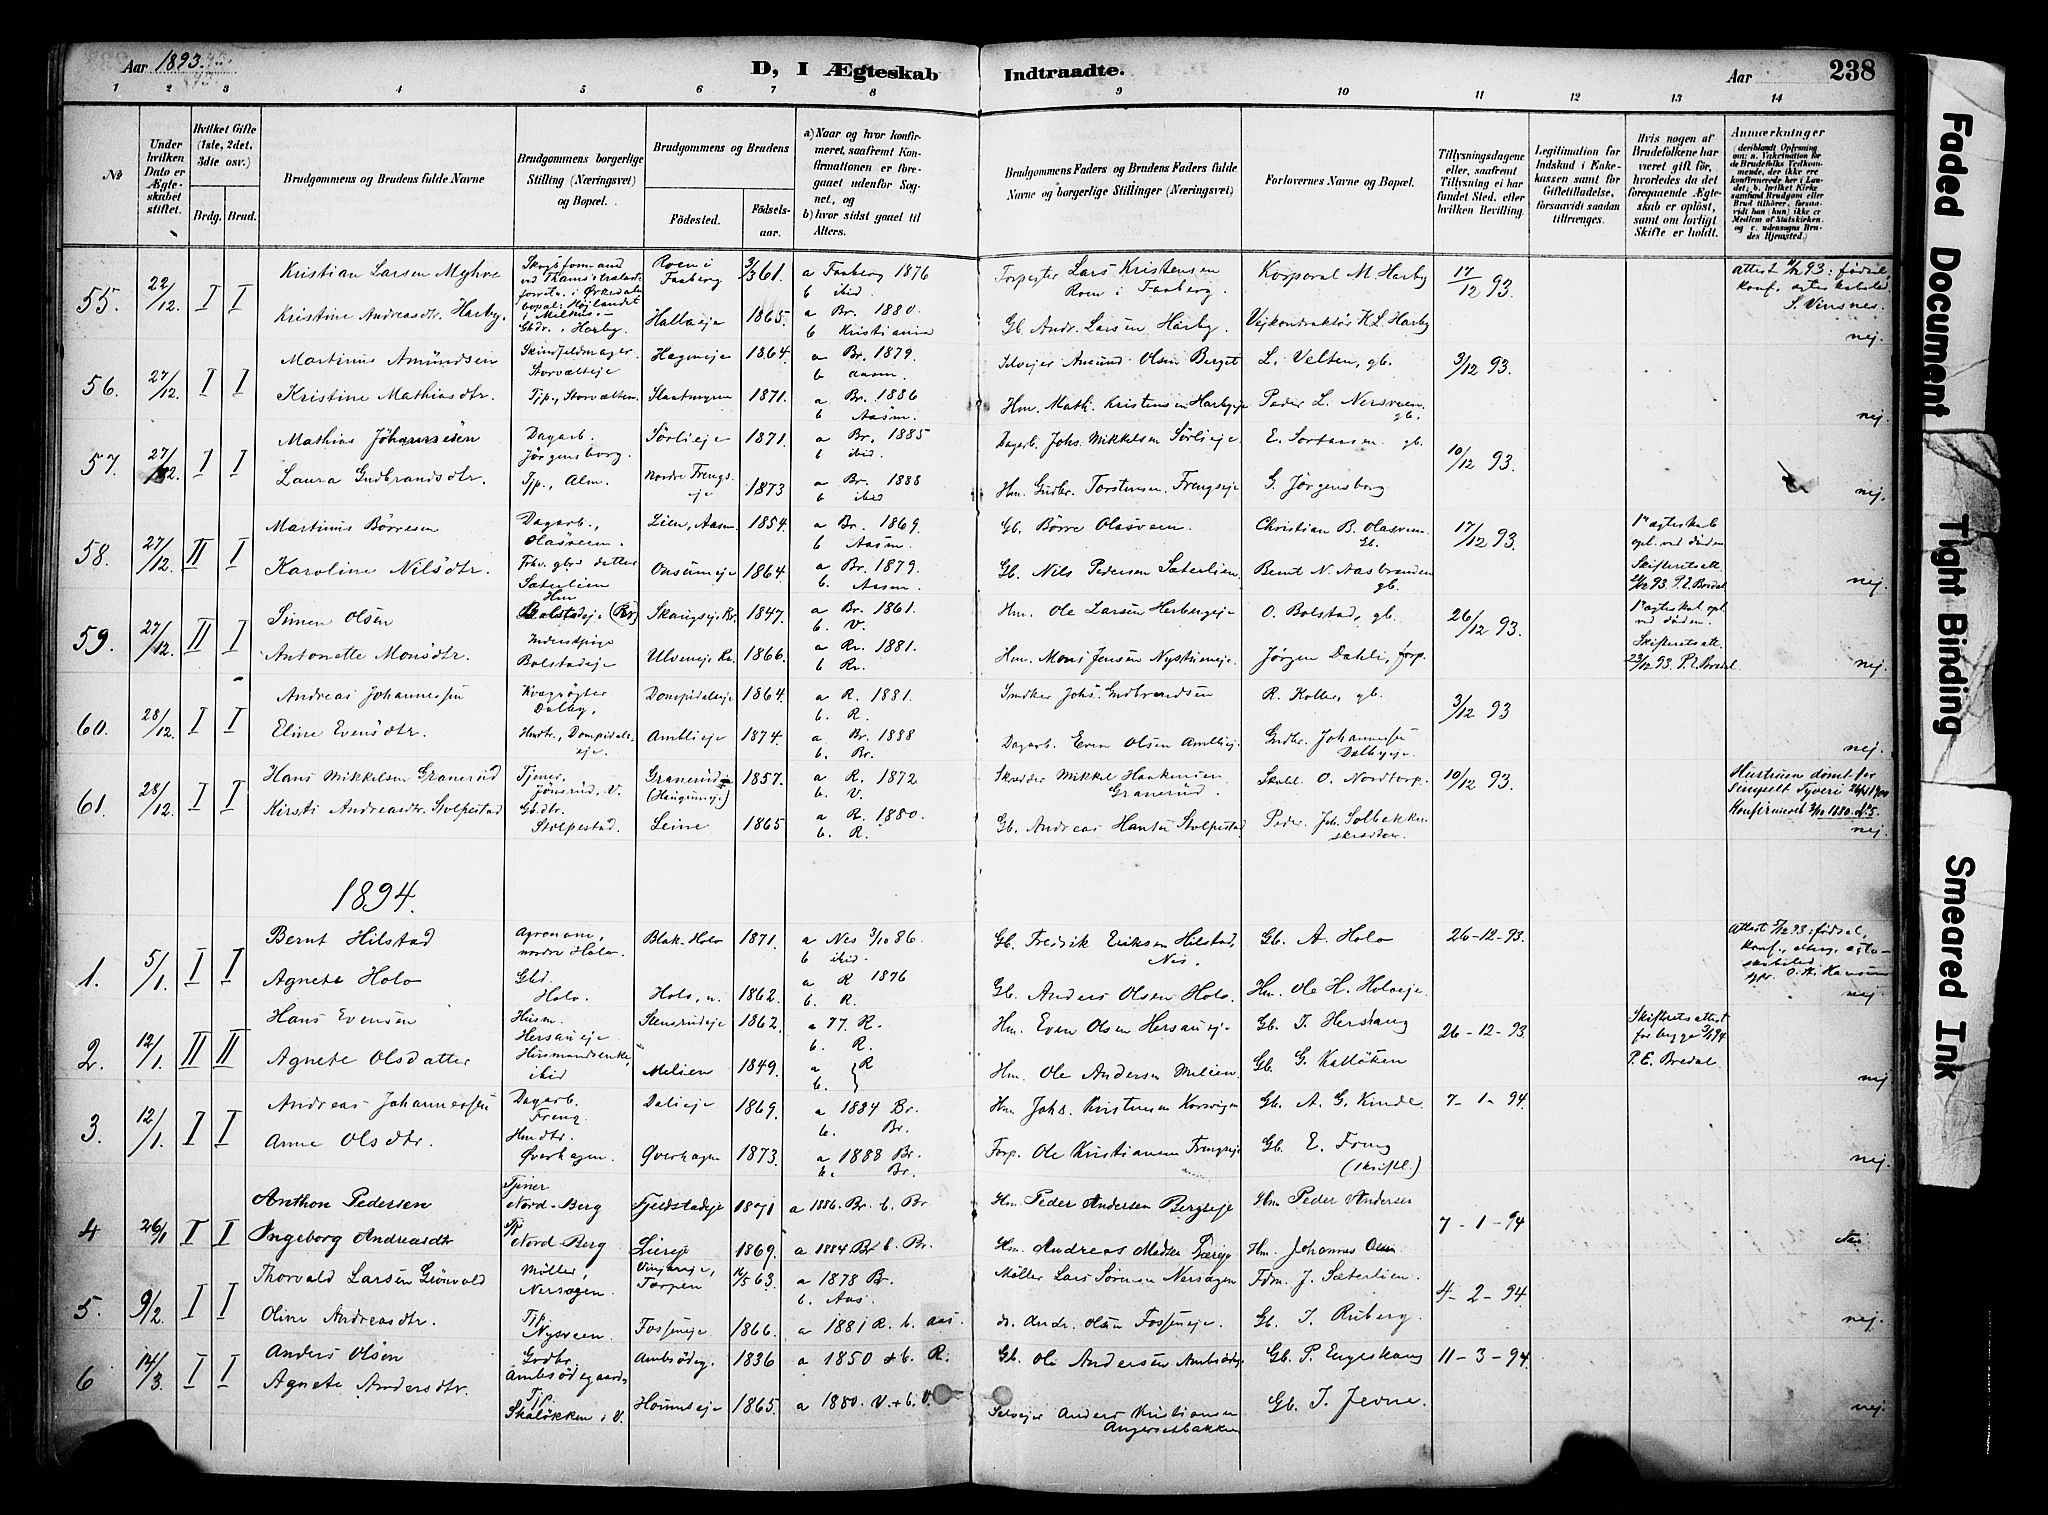 Aar 1893.
D, I Ægteskab Indtraadte.
Aar
238
1 2 3 4 5 6 7 8 9 10 11 12 13 14
No
Under hvilken Dato er Ægteskabet stiftet.
Hvilket Gifte (1ste, 2det, 3die osv.)
Brdg. Brud.
Brudgommens og Brudens fulde Navne
Brudgommens borgerlige Stilling (Næringsvei) og Bopæl.
Brudgommens og Brudens
Fødested.
Fødselsaar.
a) Naar og hvor konfirmeret, saafremt Konfirmationen er foregaaet udenfor Sognet, og
b) hvor sidst gaaet til Alters.
Brudgommens Faders og Brudens Faders fulde Navne og borgerlige Stillinger (Næringsvei)
Forlovernes Navne og Bopæl.
Tillysningsdagene eller, saafremt Tillysning ei har fundet Sted, efter hvilken Bevilling.
Legitimation for Indskud i Enkekassen samt for Giftetilladelse, forsaavidt saadan tiltrænges.
Hvis nogen af Brudefolkene har været gift før, hvorledes da det foregaaende Ægteskab er opløst, samt om lovligt Skifte er holdt.
Anmærkninger
(deriblandt Oplysning om: a. Vakcination for de Brudefolks Vedkommende, der ikke ere konfirmerede her i Landet; b. hvilket Kirkesamfund Brudgom eller Brud tilhører, forsaavidt han (hun) ikke er Medlem af Statskirken, og c. udensogns Brudes Hjemsted.)
55. 22/12. I I
Kristian Larsen Myhre
Roen i Faaberg 3/3 61. a Faaberg 1876 b ibid.
Lars Kristensen Roen i Faaberg.
Korporal M. Harby
17/12 93.
Kristine Andreasdtr. Harby.
Gbdr., Harby. Hallaeje 1865. a Br. 1880. b Kristiania
Gb. Andr. Larsen Harby.
Vejkontraktör K L. Harby
nej.
56. 27/12. I I
Martinus Amundsen
Skindfeldmager Storvælteje Hageneje 1864. a Br. 1879. b aasm.
Selvejer Amund Olsen Berget
L. Velten, gb.
3/12 93.
Kristine Mathiasdtr.
Tjp., Storvælten. 1871. a Br. 1886 b Aasm.
Hm. Math. Kristensen Harbyeje
Peder L. Nersveen gb.
nej.
57. 27/12. I I
Mathias Johannesen
Dagarb. Jørgensborg. Sørlieje 1871. a Br. 1885 b ibid.
Dagarb. Johs. Mikkelsen Sørlieje
10/12 93.
Laura Gudbrandsdtr.
Tjp., Alm. Nordre Frengseje 1873 a Br. 1888 b ibid
Hm. Gudbr. Torstensen Frengseje
G. Jørgensborg
nej.
58. 27/12. II I
Martinus Börresen
Dagarb., Olasveen. Lien, Aasm. 1854. a Br. 1869. b Aasm.
Gb. Börre Olasveen.
Christian B. Olasveen Gb.
17/12 93.
1ste ægteskab opl. ved døden
Karoline Nilsdtr.
Frhv. gbrs datter Sæterlien Onsumeje 1864. a Br. 1879. b. Aasm.
Gb. Nils Pedersen Sæterlien.
Bernt N. Aasbrenden gb.
Skifteretsatt. 93. P. E. Bredal
nej.
59. 27/12. II I
Simen Olsen
Hm Bolstadeje (Br). Skaugseje Br. 1847. a Br. 1861. b. V.
Hm. Ole Larsen Herbergeje
O. Bolstad, gb.
26/12 93.
1ste ægteskab opl. ved døden.
Antonette Monsdtr.
Inderstpige Bolstadeje Ulveneje Ra. 1866. a Br. 1881. b R.
Hm. Mons Jensen Nystueneje.
Jørgen Dahli, forp.
Skifteretsatt. 23/12 93. P. E. Bredal
nej.
60. 28/12. I I
Andreas Johannesen
Kvægrøgter Dalby, Dompidaleje 1864. a R. 1881. b. R.
Smdker Johs. Gudbrandsen
R. Koller, gb.
3/12 93
Eline Evensdtr.
Hmdtr., Dompidaleje. Amblieje 1874. a Br. 1888 b. Br.
Dagarb. Even Olsen Amblieje.
Gudbr. Johannesen Dalbyeje.
nej.
61. 28/12. I I
Hans Mikkelsen Granerud
Tjener, Jönsrud, V. Granerud (Haugeneje) 1857. a R. 1872 b. V.
Skrædder Mikkel Haakensen Granerud.
Skoleh. O. Nordtorp.
10/12 93.
Hustruen dømt for simpelt Tyveri
Kirsti Andreasdtr. Stolpestad
Gbdtr. Stolpestad. Leine 1865 a R. 1880. b. R.
Gb. Andreas Hansen Stolpestad
Peder Joh. Solbakken skrædder.
Konfirmeret 1880. No 5.
nej.
1894.
1. 5/1. I I
Bernt Hilstad
Agronom, nordre Holo. Blak-Holo 1871. a Nes 3/10 86. b ibid.
Gb. Fredrik Eriksen Hilstad, Nes.
Gb. A. Holo
26-12-93.
Agnete Holo
Gbd. Holo. Holo, n. 1862. a R 1876 b. R.
Gb. Anders Olsen Holo.
Hm. Ole H. Holoeje.
nej.
2. 12/1. II II
Hans Evensen
Husm. Hersaueje Stensrudeje 1862. a 77. R. b. R.
Hm. Even Olsen Hersaueje.
Gb. J. Herskaug
26-12-93.
Skifteretsattest for begge 94 P. E. Bredal
Agnete Olsdatter
Husmandsenke, ibid Melien 1849. a } R b.
Hm. Ole Andersen Melien.
Gb. G. Kalløken
nej
3. 12/1. I I
Andreas Johannessen
Dagarb. Freng. Dalieje 1869. a 1884 Br. b. Br.
Hm Johs. Kristensen Korsvigen
Gb. A. G. Kinde.
7-1-94.
Anne Olsdtr.
Hmdtr. Øverhagen. Øverhagen 1873. a 1888 Br. b. Br.
Forp. Ole Kristiansen Frengseje
Gb. E. Freng
nej.
4 26/1 I I
Anthon Pedersen
Tjener Nord-Berg Fjeldstadeje 1871 a 1886. Br. b. Br
Hm Peder Andersen Bergseje
Hm Peder Andersen
7-1-94
Ingeborg Andreasdtr
Tjp Nord-Berg Liereje 1869. a 1884 Br. b. Br.
Hm. Andreas Madsen Liereje
Hm. Johannes Olsen
Nei
5. 9/2. I I
Thorvald Larsen Grönvold
Møller, Nersagen. Vinjareje, Torpen 63. a 1878 Br. b. Aas.
Møller Lars Sörensen Nersagen
Fdm. J. Sæterlien.
4-2-94.
Oline Andreasdtr.
Tjp. Nysveen. Fosseneje. 1866. a 1881 R. b. aas.
Andr. Olsen Fosseneje.
Gb. J. Ruberg.
nej.
6 14/3. I I
Anders Olsen
Grdbr. Ambsödegaard Ambsödeg. 1836 a 1850 + b. R.
Gb. Ole Andersen Ambsödeg
Gb. P. Engeskaug
11-3-94.
Agnete Andersdtr.
Tjp. Skaløkken i V. Hommseje 1865. a 1880. V. + b. V.
Selvejer Anders Kristiansen Angersetbakken
Gb. J. Jevne.
nej.
Faded Document
Tight Binding
Smeared Ink